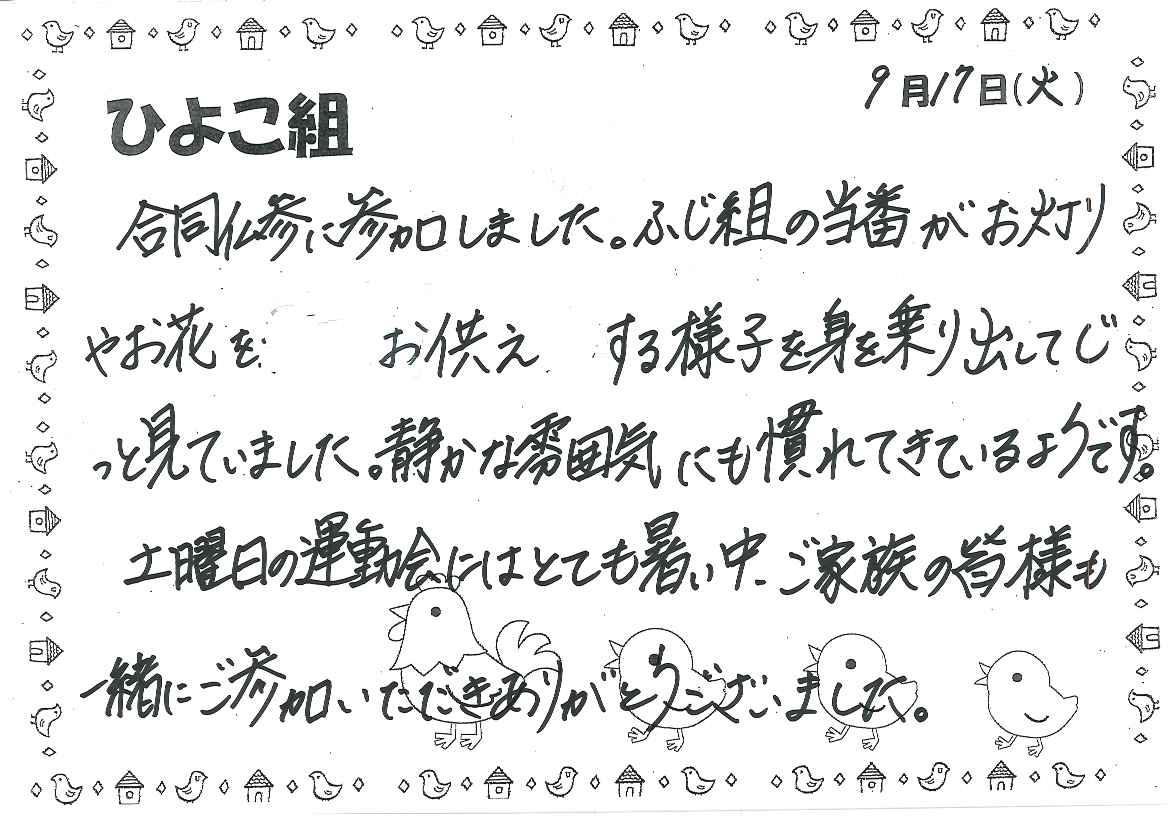 9月17日(火)
ひよこ組
合同仏参に参加しました。ふじ組の当番がお灯り
やお花を お供え する様子を身を乗り出してじ
っと見ていました。静かな雰囲気にも慣れてきているようです。
土曜日の運動会にはとても暑い中、ご家族の皆様も
一緒にご参加いただきありがとうございました。